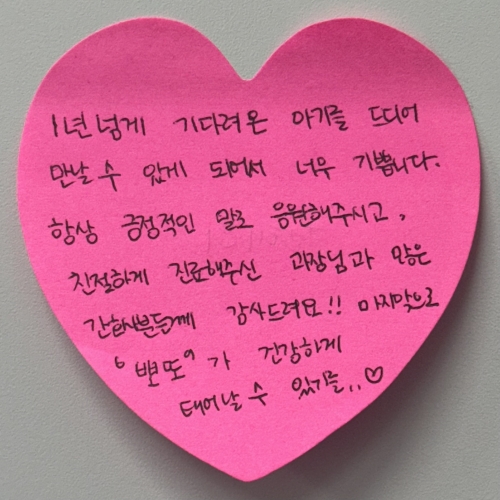 1년넘게 기다려온 아기를 드디어
만날 수 있게 되어서 너무 기쁩니다.
항상 긍정적인 말로 응원해주시고,
친절하게 진료해주신 과장님과 많은
간호사분들께 감사드려요!! 마지막으로
"뽀또"가 건강하게
태어날 수 있기를..♡